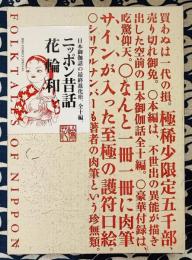 買わぬは一代の損。極稀少限定五千部
売り切れ御免。〇本編は、不世出の異能が描き
出した空前の日本御伽話全十編。〇豪華付録は、
吃驚仰天。〇なんと一冊一冊に肉筆
サインが入った至極の護符口絵。
〇シリアルナンバーも著者の肉筆という珍無類。
日本御伽話の最終最花形 全十編
ニッポン昔話
花輪和一
FOLKTALES OF NIPPON